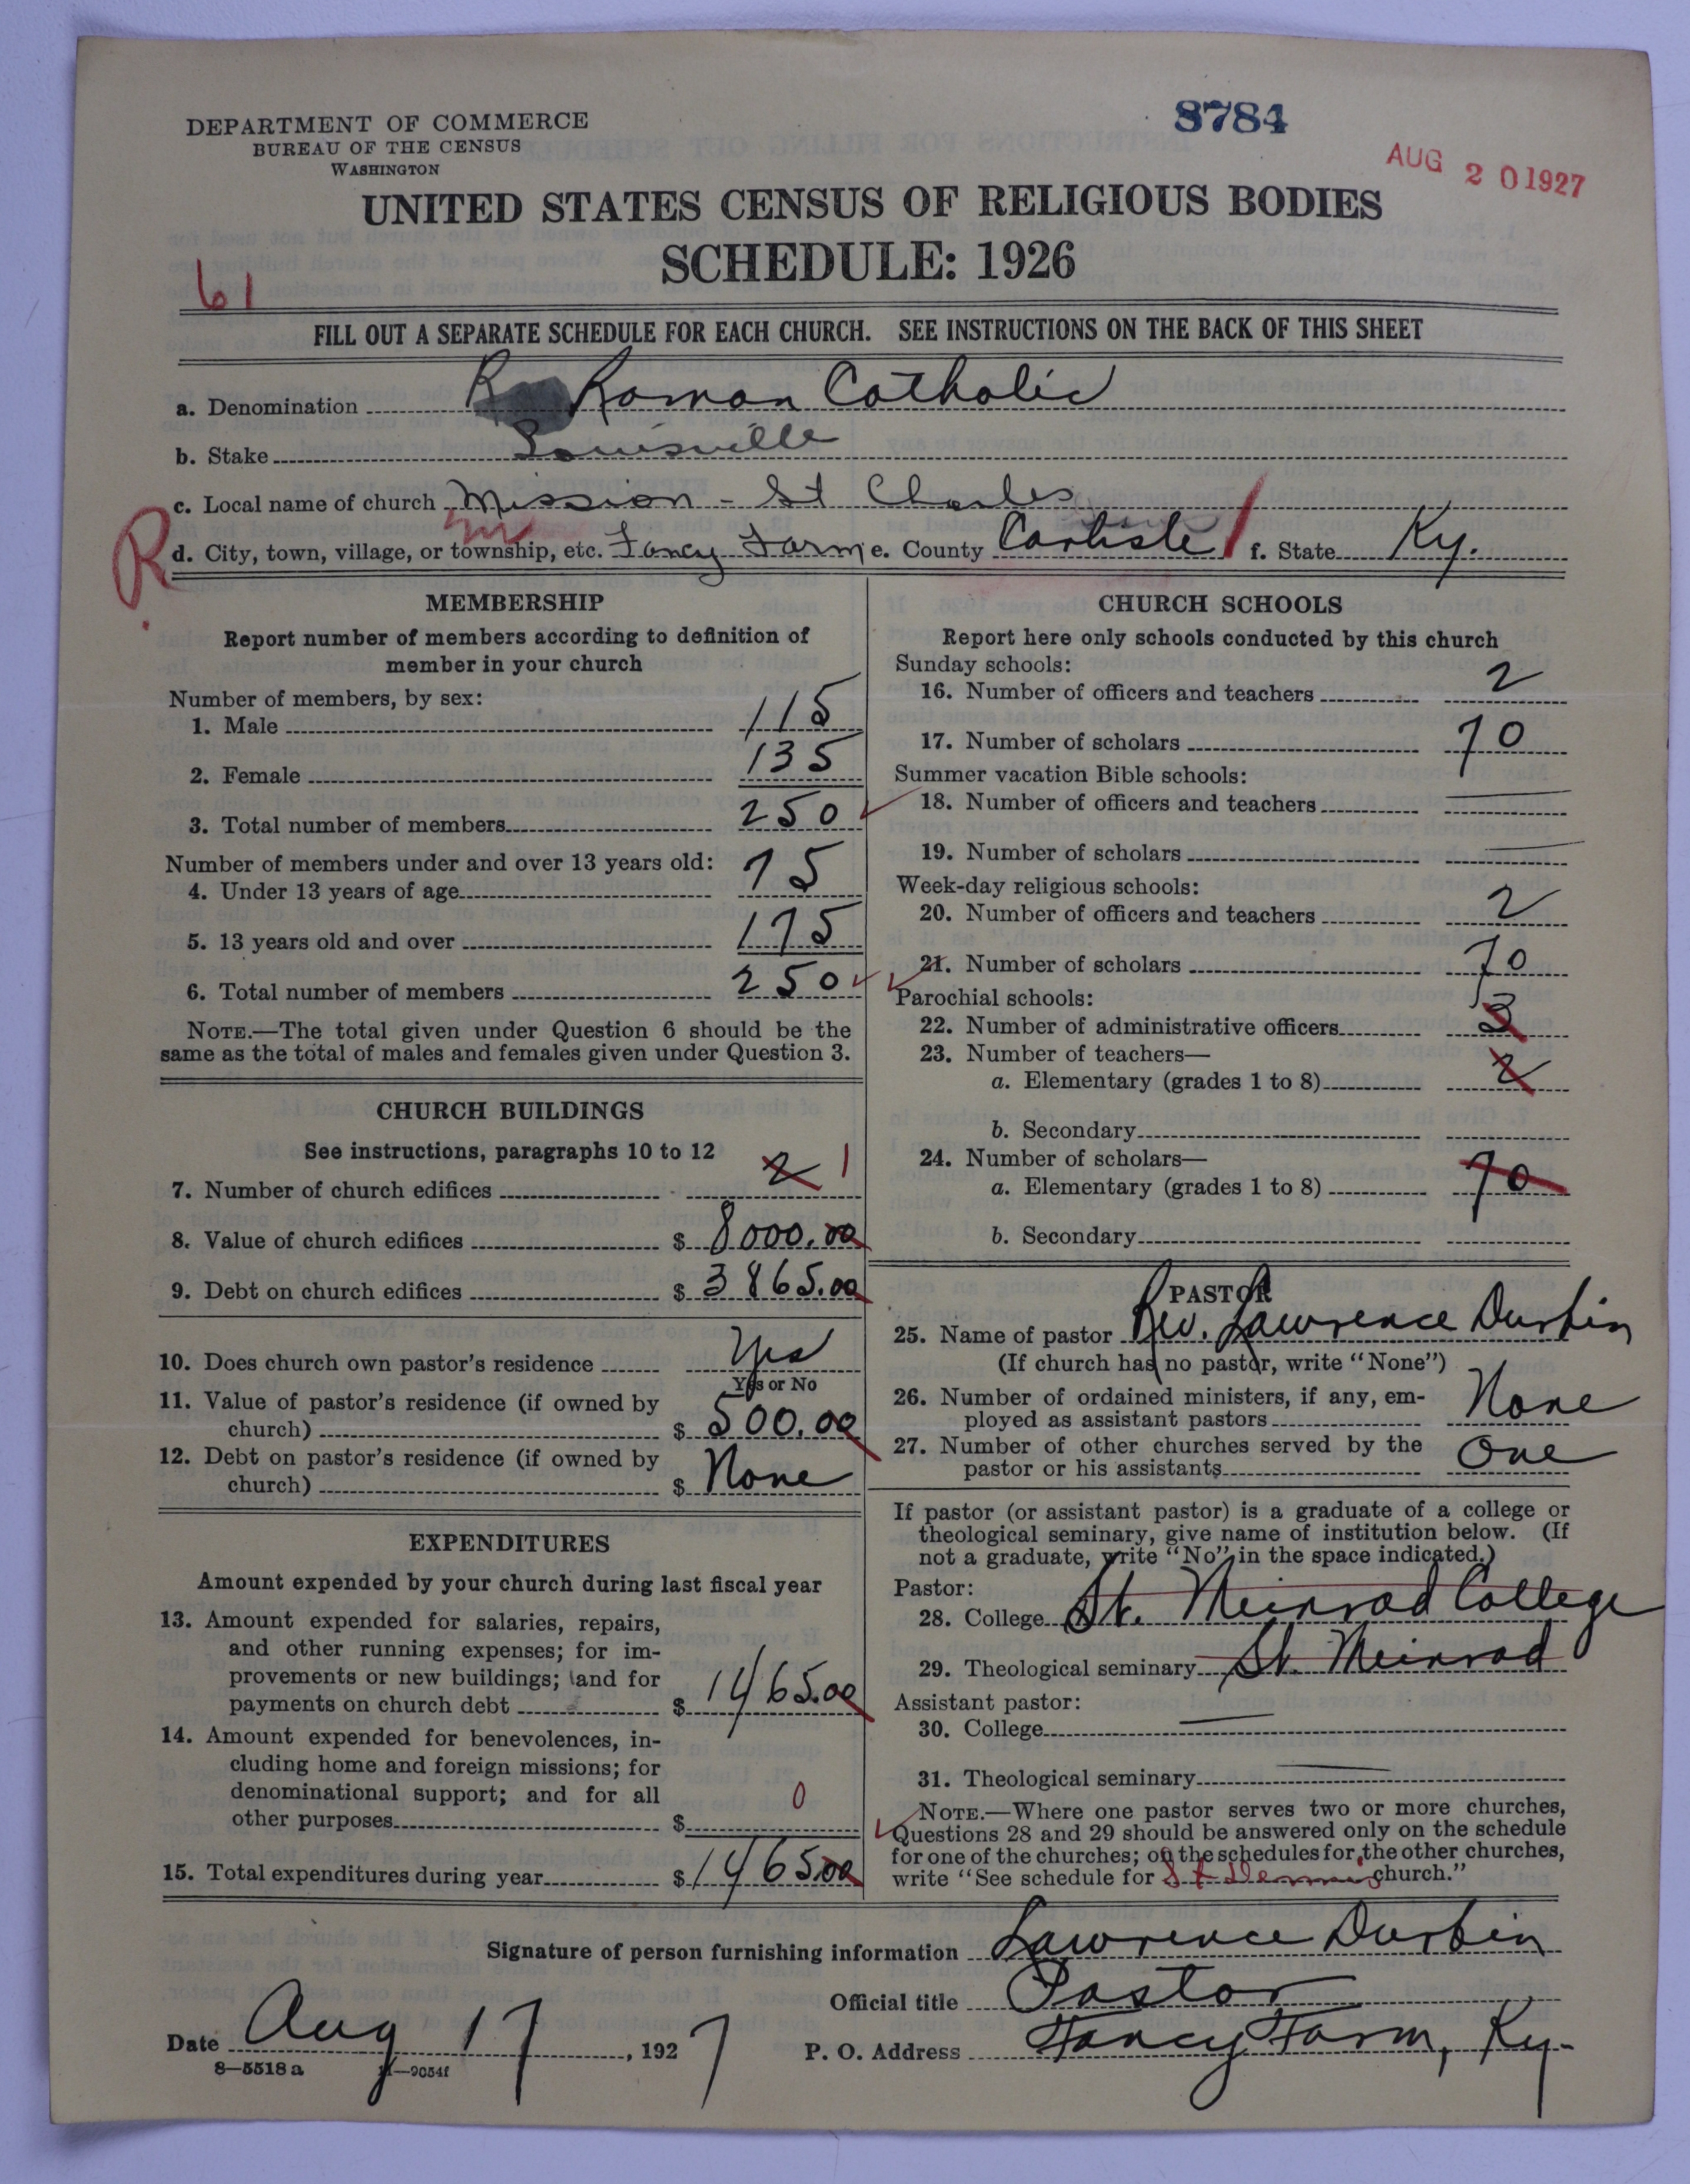 DEPARTMENT OF COMMERCE
BUREAU OF THE CENSUS
WASHINGTON
8784
AUG 20 1927
UNITED STATES CENSUS OF RELIGIOUS BODIES
SCHEDULE: 1926
61
FILL OUT A SEPARATE SCHEDULE FOR EACH CHURCH. SEE INSTRUCTIONS ON THE BACK OF THIS SHEET
a. Denomination Roman Catholic
b. Stake Louisville
c. Local name of church Mission - St Charles
R
d. City, town, village, or township, etc. Fancy Farm e. County Carlisle f. State Ky.
MEMBERSHIP
Report number of members according to definition of
member in your church
Number of members, by sex:
1. Male 115
2. Female 135
3. Total number of members 250
Number of members under and over 13 years old:
4. Under 13 years of age 75
5. 13 years old and over 175
6. Total number of members 250
NOTE.—The total given under Question 6 should be the
same as the total of males and females given under Question 3.
CHURCH BUILDINGS
See instructions, paragraphs 10 to 12
7. Number of church edifices 2 1
8. Value of church edifices $ 8000.00
9. Debt on church edifices $ 3865.00
10. Does church own pastor's residence Yes
Yes or No
11. Value of pastor's residence (if owned by
church) $ 500.00
12. Debt on pastor's residence (if owned by
church) $ None
EXPENDITURES
Amount expended by your church during last fiscal year
13. Amount expended for salaries, repairs,
and other running expenses; for im-
provements or new buildings; and for
payments on church debt $ 1465.00
14. Amount expended for benevolences, in-
cluding home and foreign missions; for
denominational support; and for all
other purposes $ 0
15. Total expenditures during year $ 1465.00
CHURCH SCHOOLS
Report here only schools conducted by this church
Sunday schools:
16. Number of officers and teachers 2
17. Number of scholars 70
Summer vacation Bible schools:
18. Number of officers and teachers
19. Number of scholars
Week-day religious schools:
20. Number of officers and teachers 2
21. Number of scholars 70
Parochial schools:
22. Number of administrative officers 3
23. Number of teachers—
a. Elementary (grades 1 to 8) 2
b. Secondary
24. Number of scholars—
a. Elementary (grades 1 to 8) 70
b. Secondary
PASTOR
25. Name of pastor Rev. Lawrence Durbin
(If church has no pastor, write "None")
26. Number of ordained ministers, if any, em-
ployed as assistant pastors None
27. Number of other churches served by the
pastor or his assistants One
If pastor (or assistant pastor) is a graduate of a college or
theological seminary, give name of institution below. (If
not a graduate, write "No" in the space indicated.)
Pastor:
28. College St. Meinrad College
29. Theological seminary St. Meinrad
Assistant pastor:
30. College
31. Theological seminary
NOTE.—Where one pastor serves two or more churches,
Questions 28 and 29 should be answered only on the schedule
for one of the churches; on the schedules for the other churches,
write "See schedule for St Dennis church."
Signature of person furnishing information Lawrence Durbin
Official title Pastor
Date Aug 17, 1927 P. O. Address Fancy Farm, Ky.
8—5518 a 11—9054f